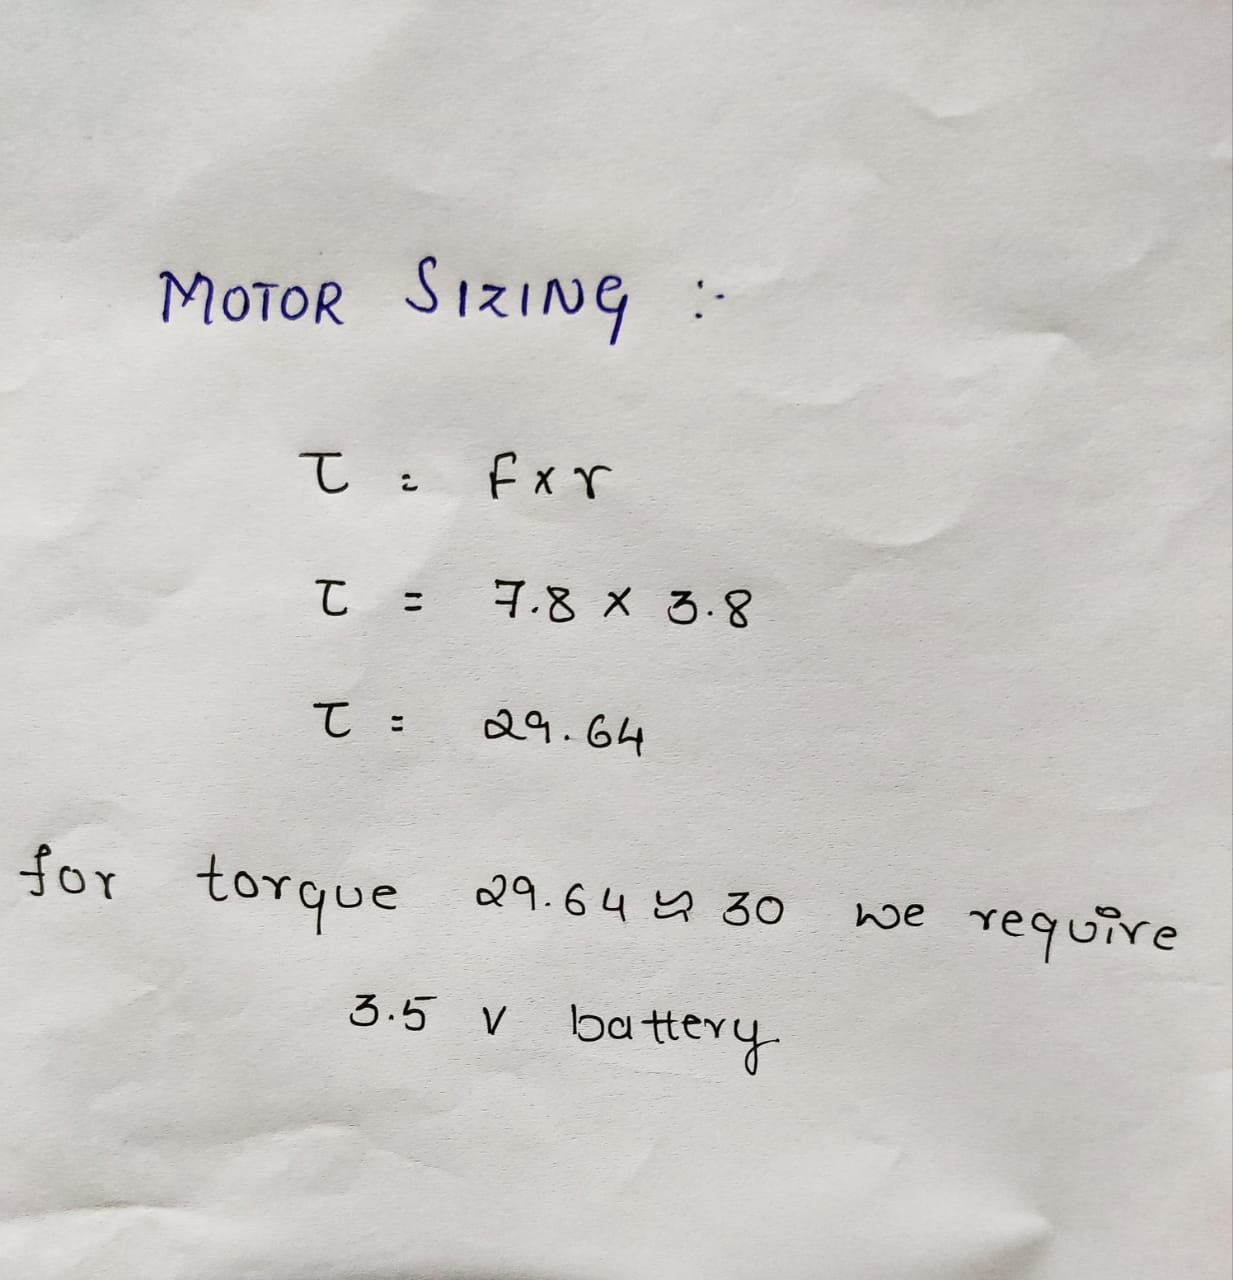 MOTOR SIZING :-
τ = F x r
τ = 7.8 x 3.8
τ = 29.64
for torque 29.64 ≈ 30 we require
3.5 v battery